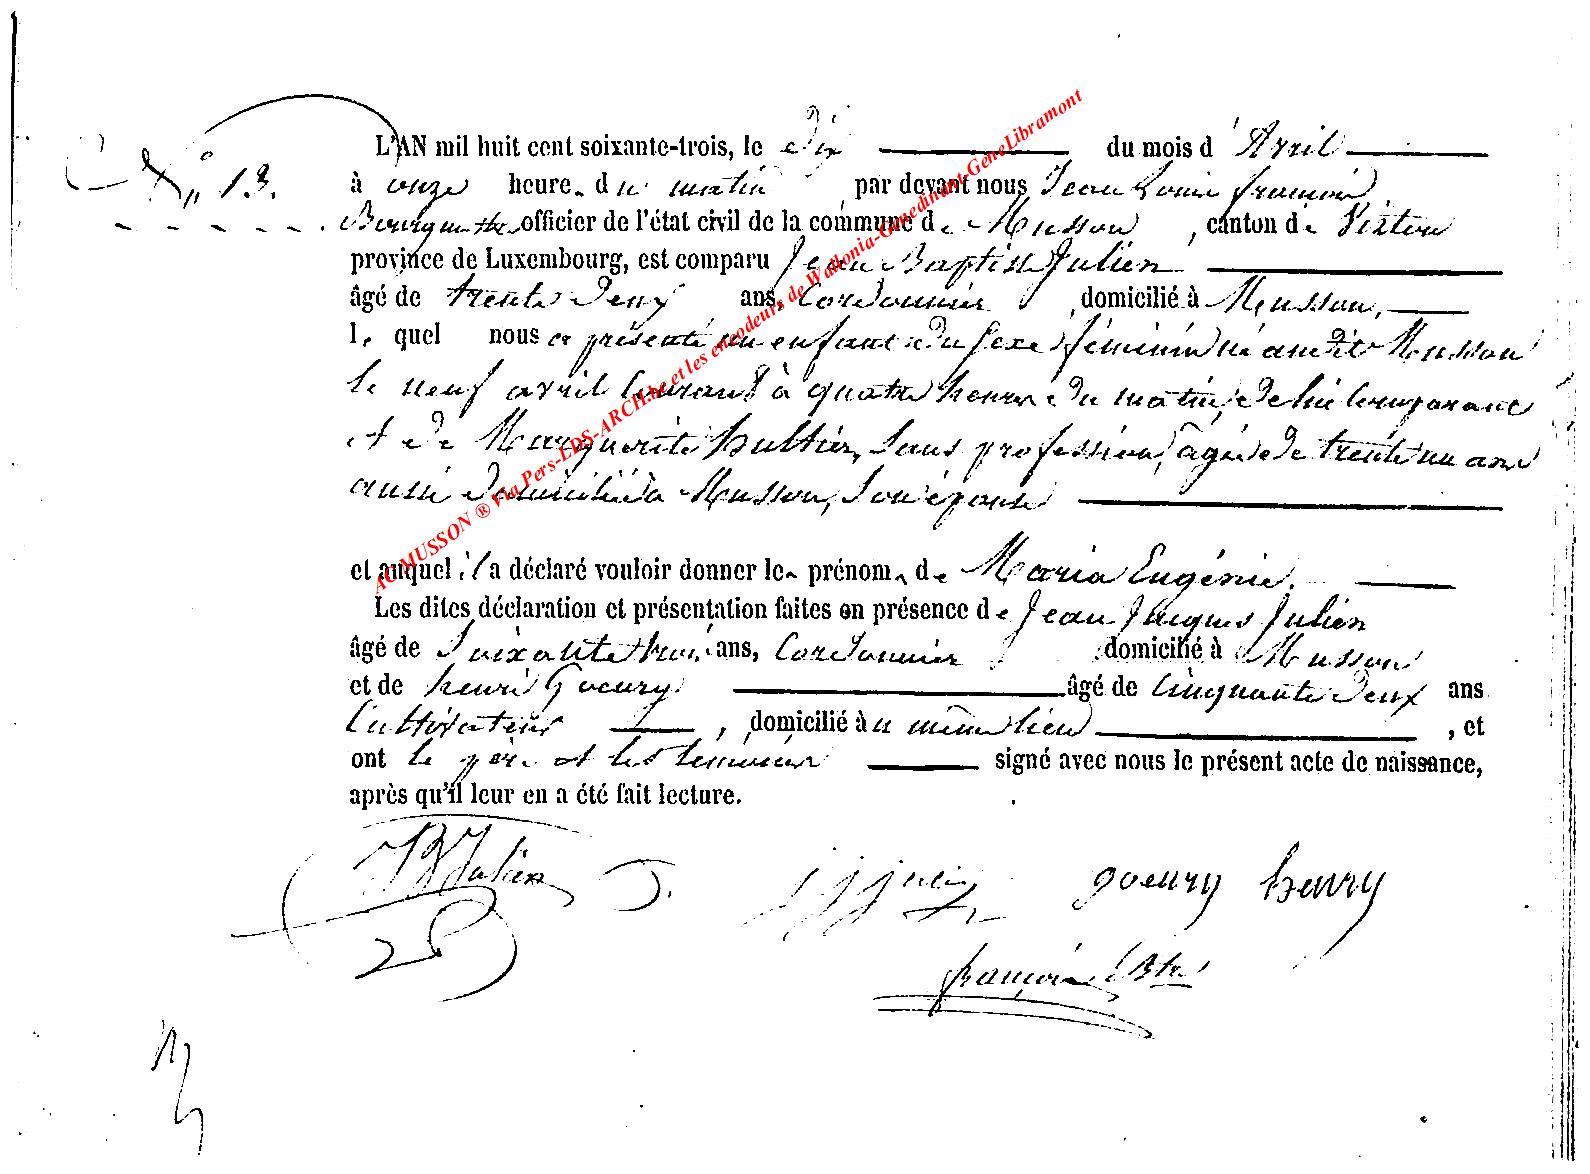 L'AN mil huit cent soixante-trois, le dix du mois d'Avril
N° 13. à onze heures du matin par devant nous Jean Louis françois
Bourgmtre officier de l'état civil de la commune de Musson, canton de Virton
province de Luxembourg, est comparu Jean Baptiste Julien
âgé de trente deux ans, Cordonnier domicilié à Musson,
lequel nous a présenté un enfant du sexe féminin né au dit Musson
le neuf avril Courant à quatre heures du matin, de lui Comparant
et de Marguerite hultier, sans profession, âgée de trente un ans
aussi domiciliée à Musson, son épouse
et auquel il a déclaré vouloir donner les prénoms de Maria Eugénie.
Les dites déclaration et présentation faites en présence de Jean Jacques Julien
âgé de Soixante trois ans, Cordonnier domicilié à Musson
et de henri Goeury âgé de Cinquante deux ans
Cultivateur, domicilié au même lieu, et
ont le père et les témoins signé avec nous le présent acte de naissance,
après qu'il leur en a été fait lecture.
JB Julien J J Julien goeury henry
françois Btre
AC MUSSON ® Via Pers-EDS-ARCH.be et les encodeurs de Wallonia-Genedinant-GeneLibramont